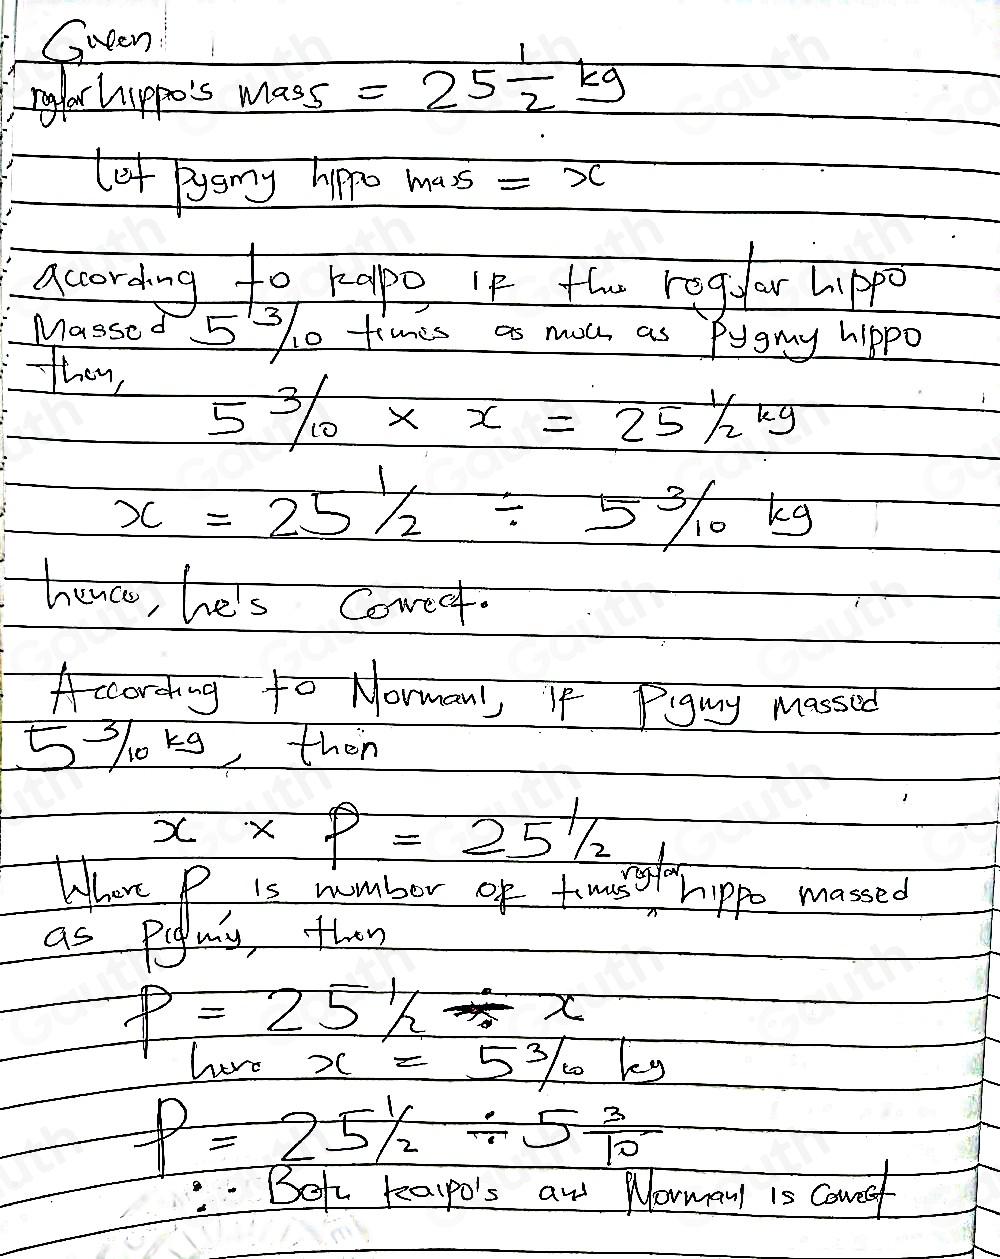 Given
regular hippo's mass = 25 1/2 kg
let pygmy hippo mass = x
According to kaipo if the regular hippo
Massed 5 3/10 times as much as Pygmy hippo
then,
5 3/10 × x = 25 1/2 kg
x = 25 1/2 ÷ 5 3/10 kg
hence, he's Correct.
According to Normani, if Pigmy massed
5 3/10 kg, then
x × P = 25 1/2
Where P is number of times regular hippo massed
as pigmy, then
P = 25 1/2 ÷ x
here x = 5 3/10 kg
P = 25 1/2 ÷ 5 3/10
∴ Both kaipo's and Normani is correct